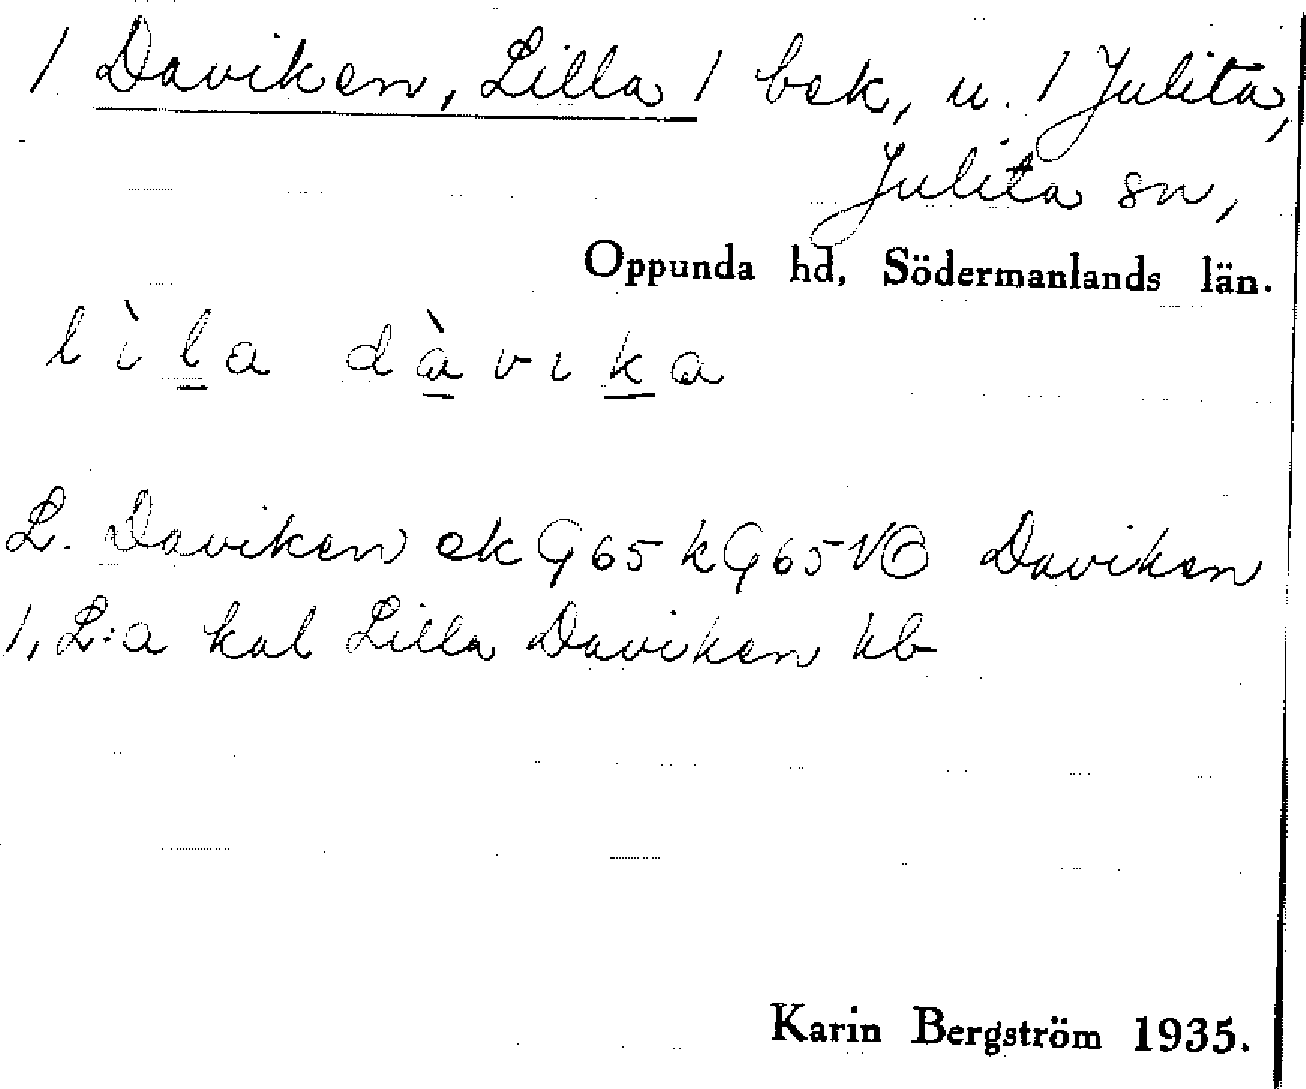 / Daviken, Lilla / bsk, u. / Julita,
Julita sn,
Oppunda hd, Södermanlands län.
lìla dàvika
L. Daviken ek G65 k G65 NO Daviken
1, L:a kal Lilla Daviken kb
Karin Bergström 1935.